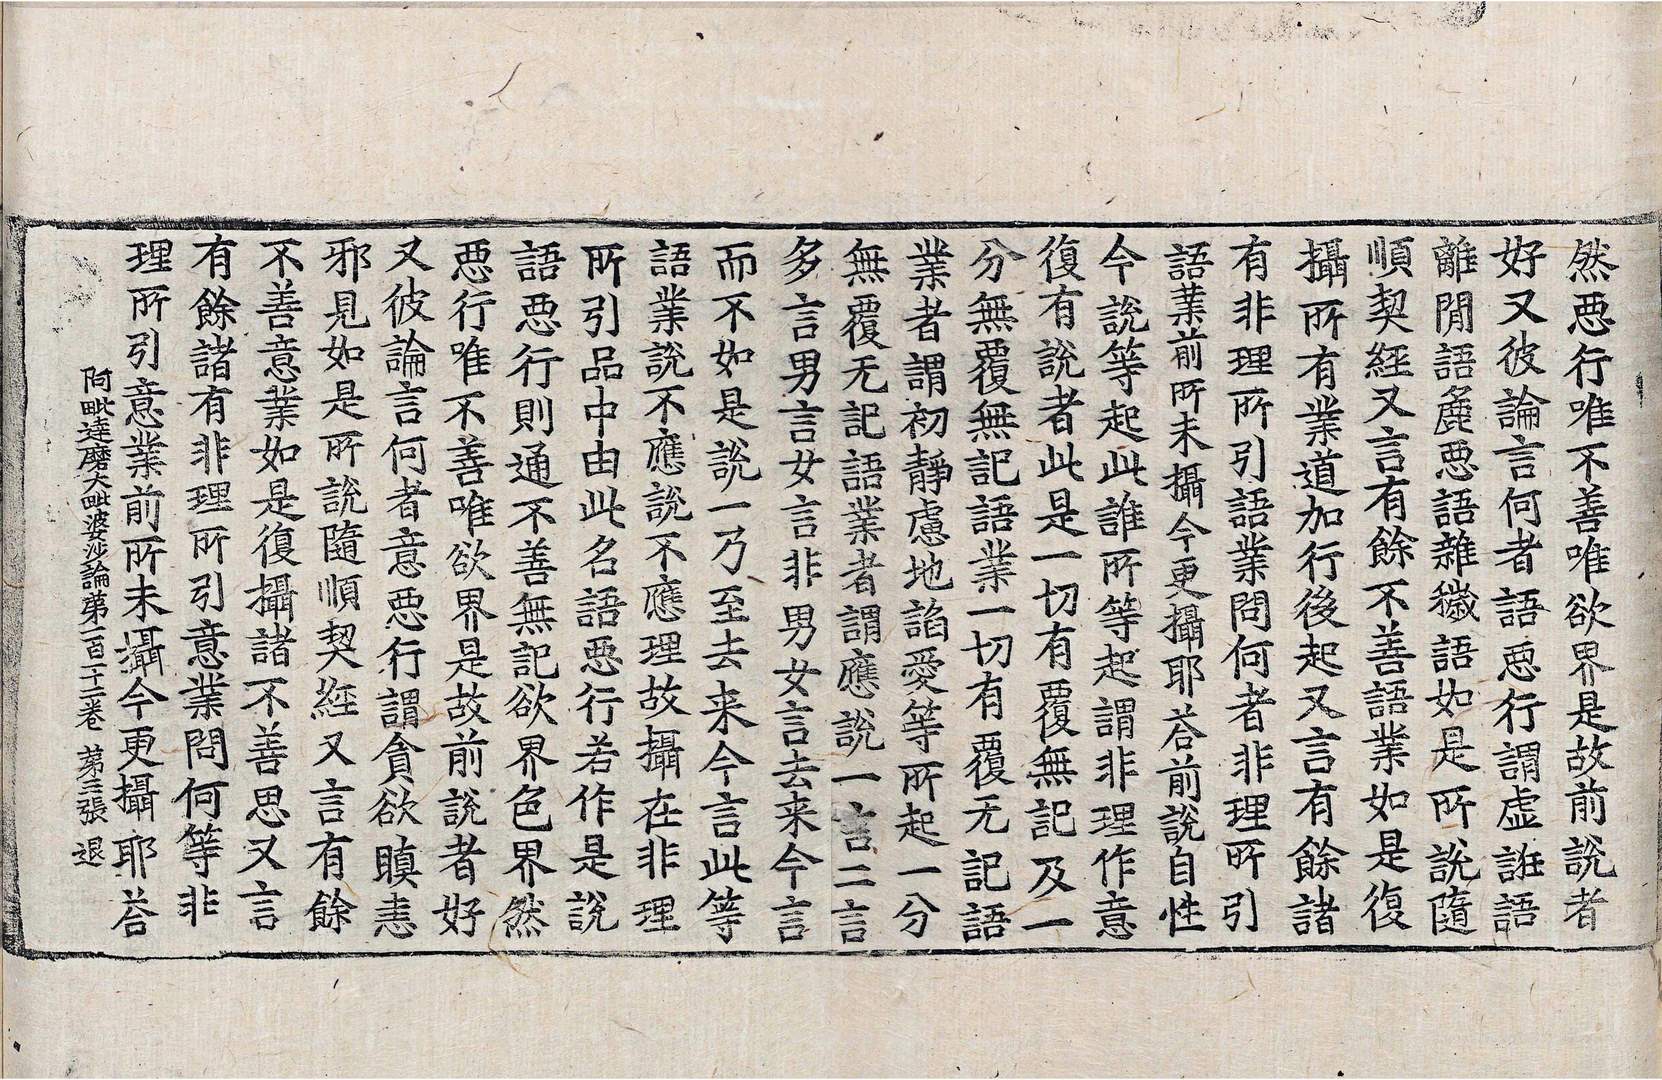 然惡行唯不善唯欲界是故前說者
好又彼論言何者語惡行謂虛誑語
離間語麁惡語雜穢語如是所說隨
順契經又言有餘不善語業如是復
攝所有業道加行後起又言有餘諸
有非理所引語業問何者非理所引
語業前所未攝今更攝耶荅前說自性
今說等起此誰所等起謂非理作意
復有說者此是一切有覆無記及一
分無覆無記語業一切有覆无記語
業者謂初靜慮地諂愛等所起一分
無覆无記語業者謂應說一言二言
多言男言女言非男女言去来今言
而不如是說一乃至去来今言此等
語業說不應說不應理故攝在非理
所引品中由此名語惡行若作是說
語惡行則通不善無記欲界色界然
惡行唯不善唯欲界是故前說者好
又彼論言何者意惡行謂貪欲瞋恚
邪見如是所說隨順契經又言有餘
不善意業如是復攝諸不善思又言
有餘諸有非理所引意業問何等非
理所引意業前所未攝今更攝耶荅
阿毗達磨大毗婆沙論第一百一十二卷 第三張 退